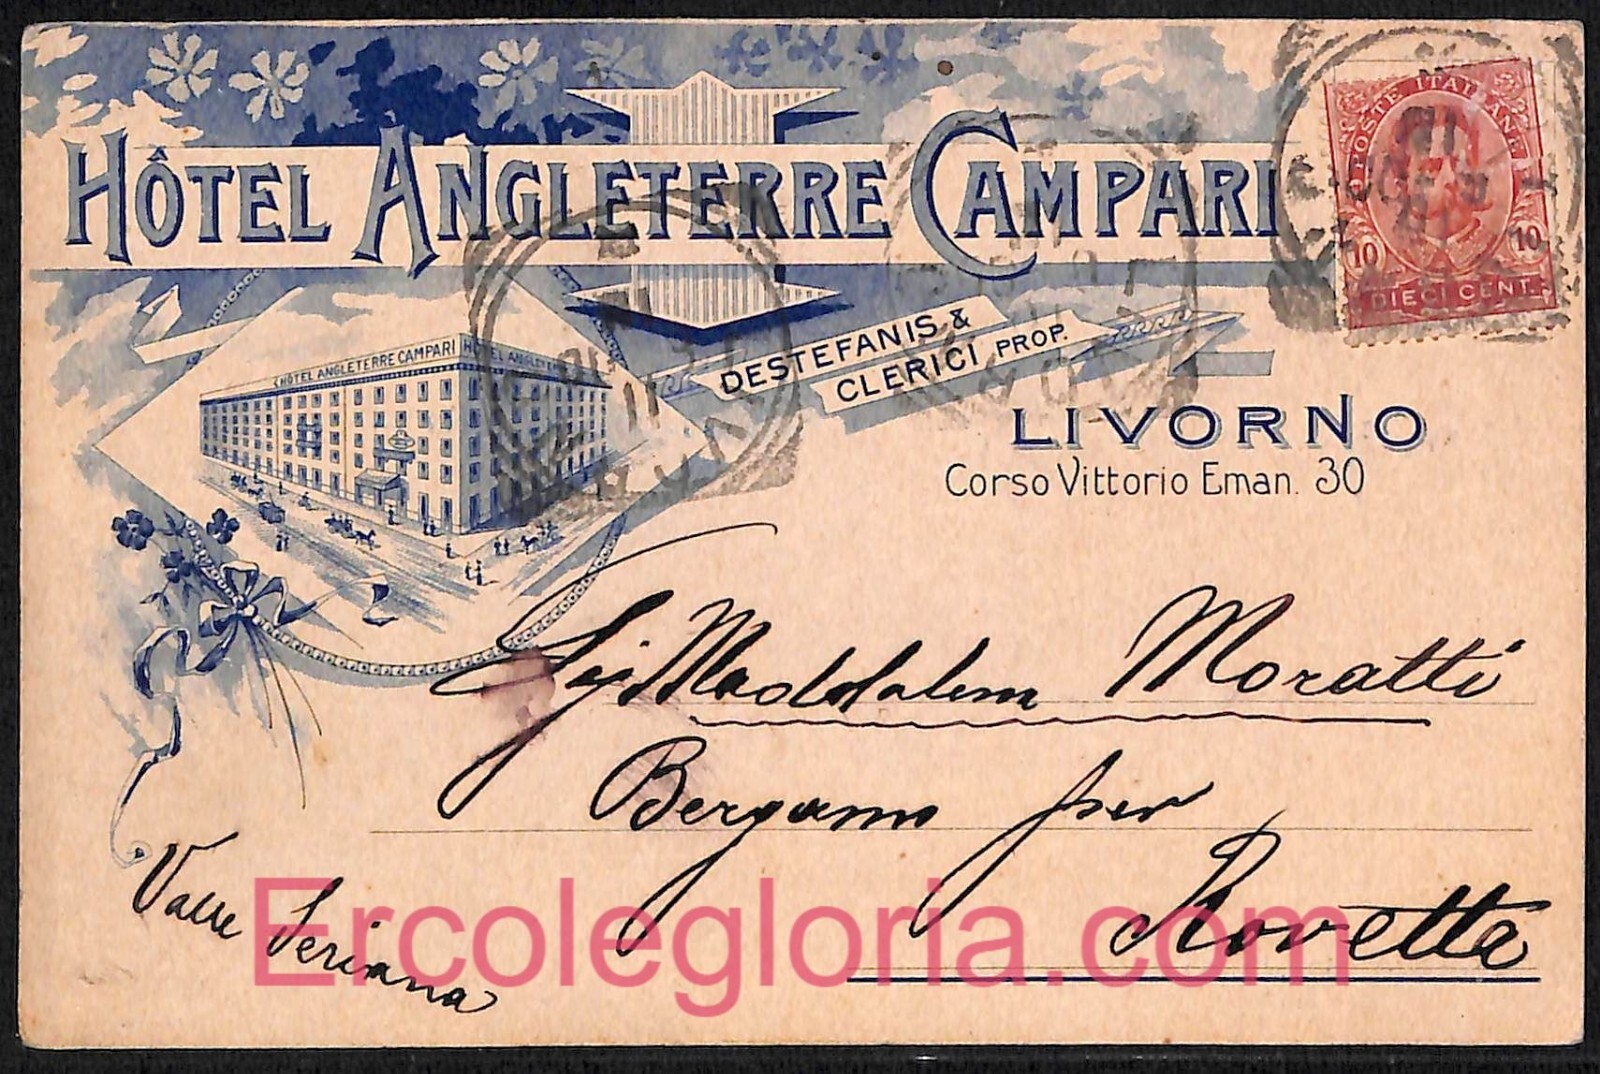 HÔTEL ANGLETERRE CAMPARI
POSTE ITALIANE
10 10
DIECI CENT.
DESTEFANIS &
CLERICI PROP.
HÔTEL ANGLETERRE CAMPARI HÔTEL
LIVORNO
Corso Vittorio Eman. 30
Maddalena Moratti
Bergamo per
Rovetta
Valle Seriana
Ercolegloria.com